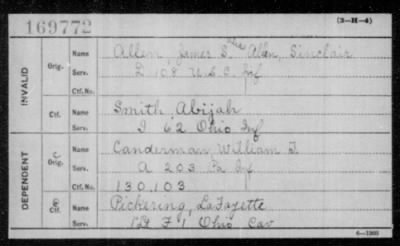 169772
(3-H-4)
INVALID
Orig.
Name Allen, James S. alias Allen, Sinclair
Serv. D 108 U.S.C. Inf
Ctf. No.
Ctf.
Name Smith, Abijah
Serv. I 62 Ohio Inf
DEPENDENT
C Orig.
Name Canderman, William F.
Serv. A 203 Pa Inf
Ctf. No. 130,103
C Ctf.
Name Pickering, LaFayette
Serv. 1Lt F 1 Ohio Cav
6-1365